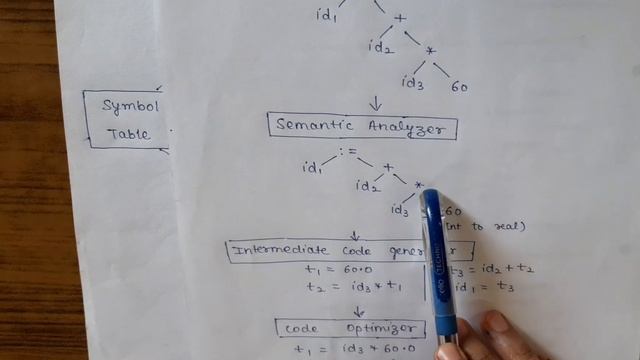 id1 +
id2 *
id3 60
Symbol
Table
Semantic Analyzer
:=
id1 +
id2 *
id3 60
int to real)
Intermediate code
t1 = 60.0 t3 = id2 + t2
t2 = id3 * t1 id1 = t3
Code Optimizer
t1 = id3 * 60.0